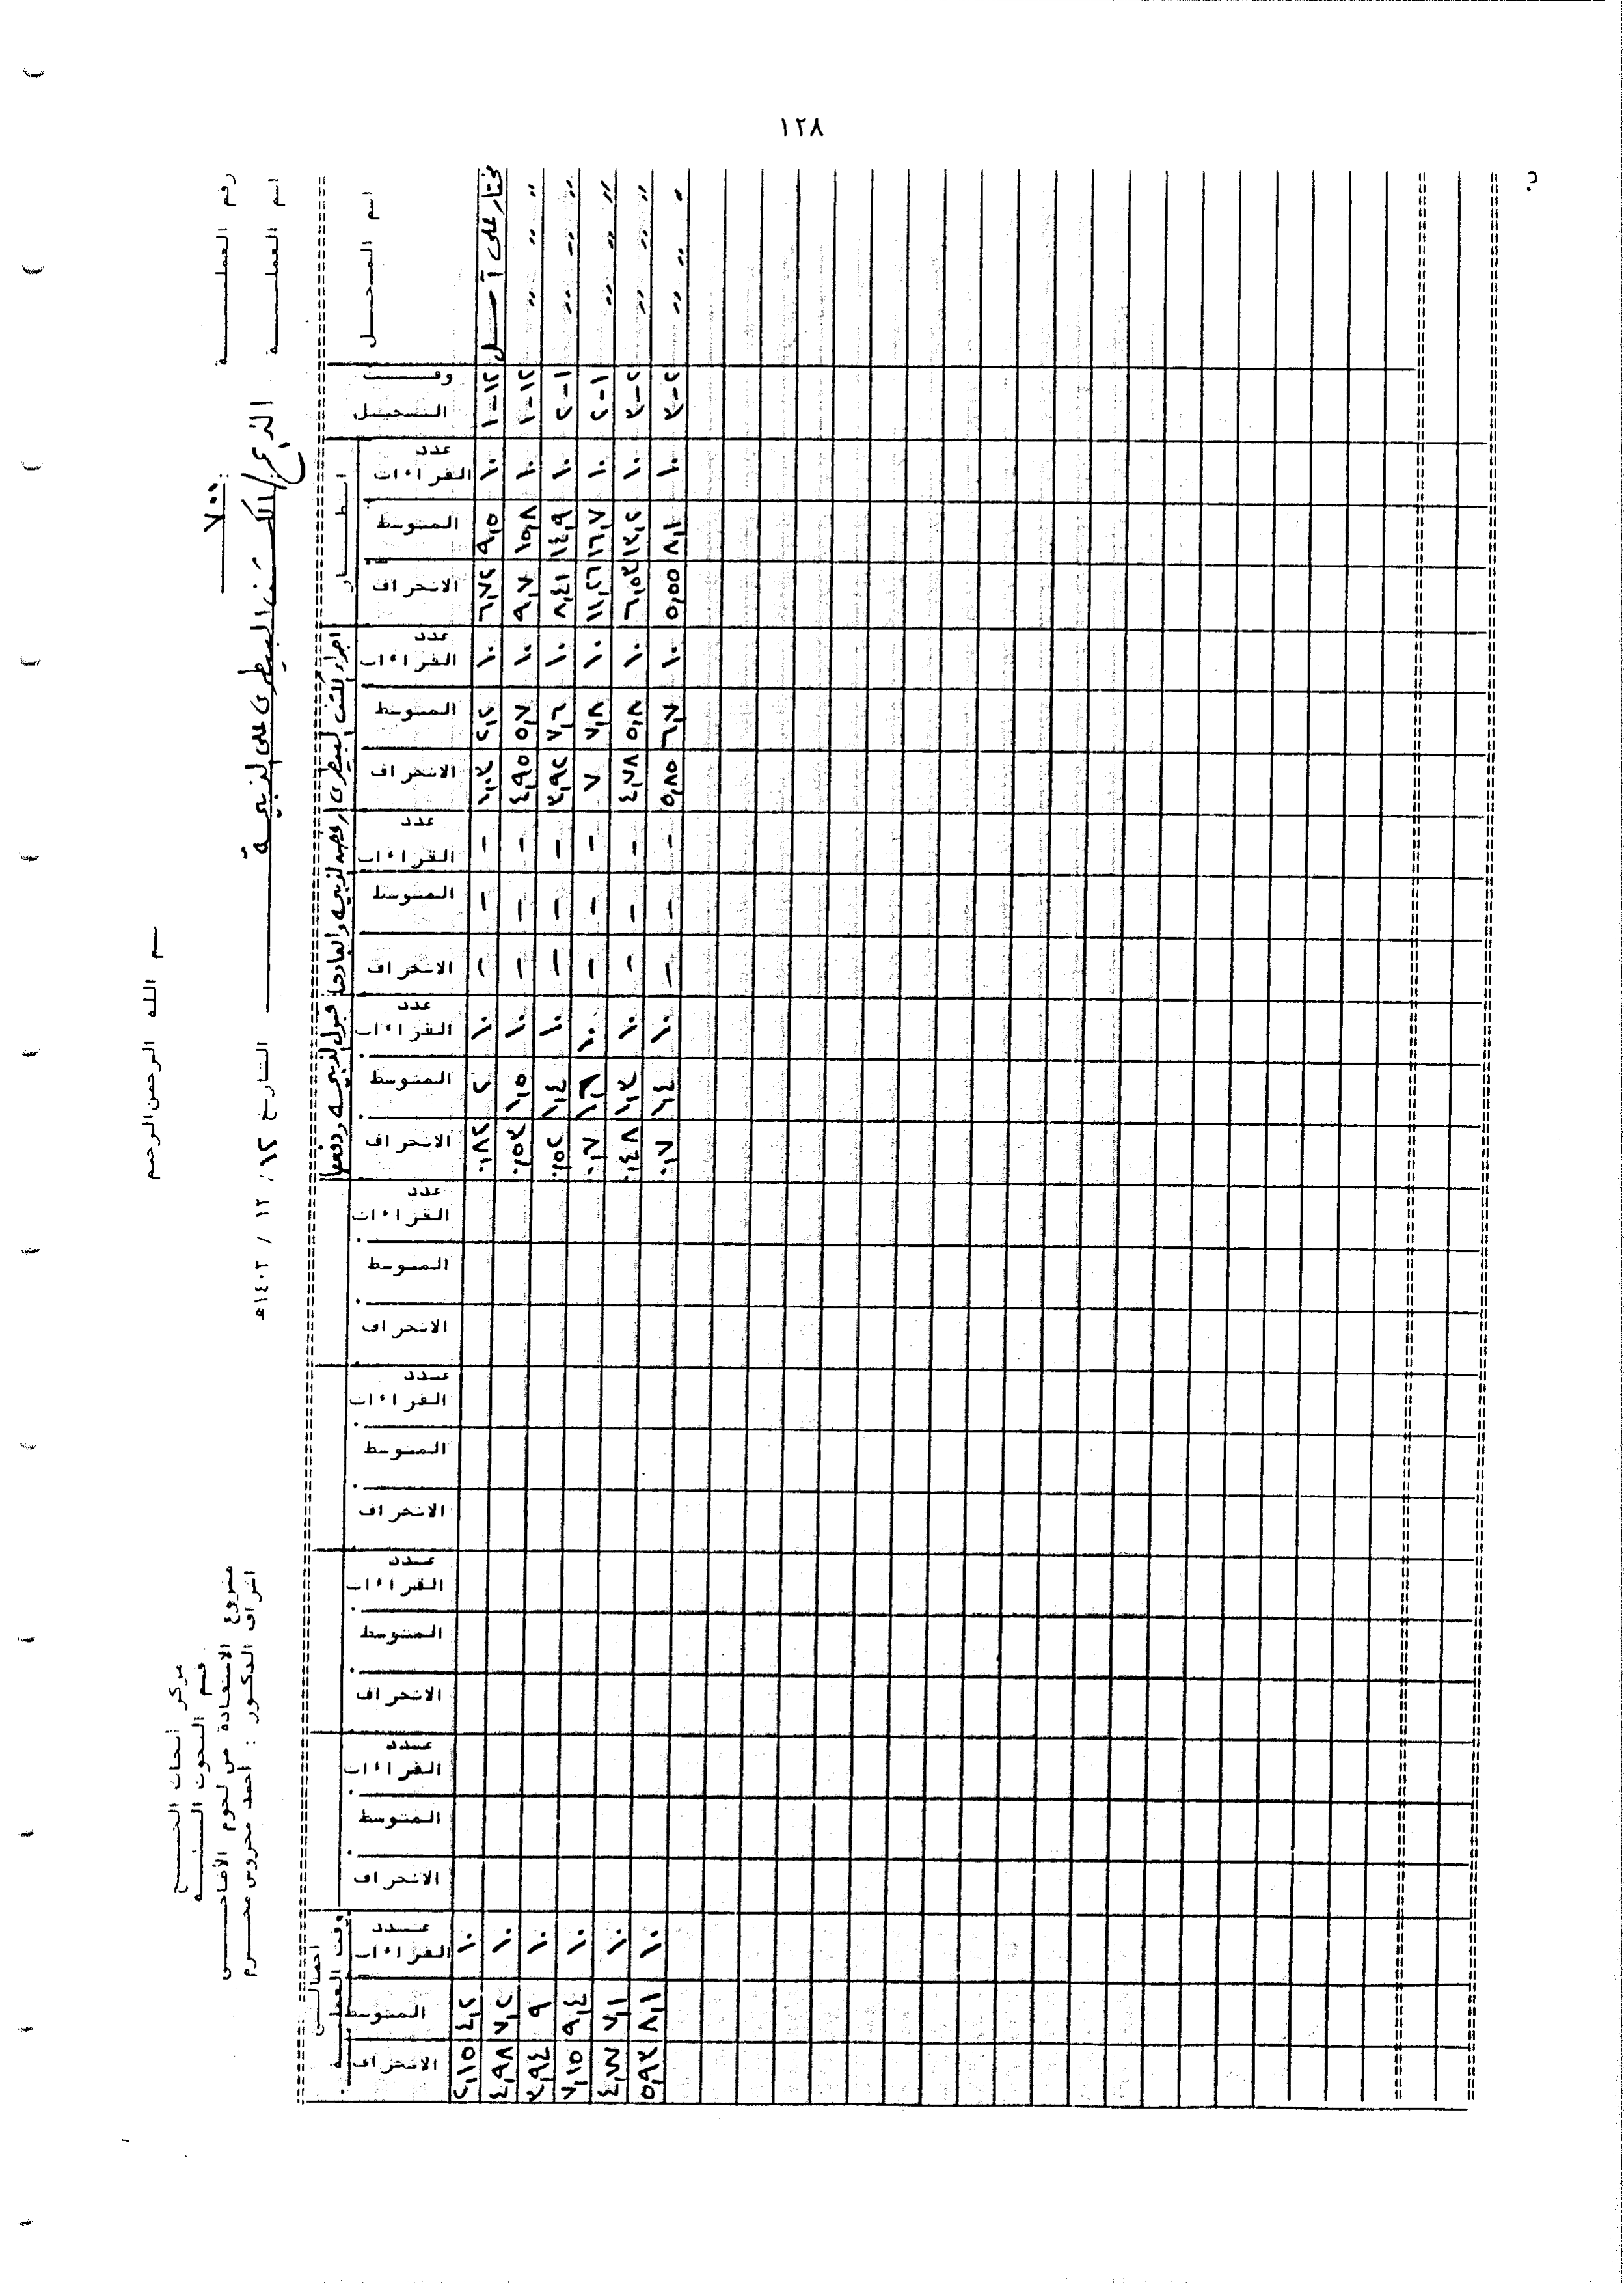 ١٢٨
بسم الله الرحمن الرحيم
مركز أبحاث الحج
قسم البحوث البيئية
مشروع الاستفادة من لحوم الأضاحى
اشراف الدكتور : أحمد محروس محرم
رقم العملية ٧٠٠
اسم العملية الذبح / الكشف البيطرى على الذبيحة التاريخ ١٢ / ١٢ / ١٤٠٢هـ
اسم المسجل وقت التسجيل انتظار اجراء الكشف البيطرى قبول الذبيحه ودفعها اجمالى وقت العملية
عدد القراءات المتوسط الانحراف عدد القراءات المتوسط الانحراف عدد القراءات المتوسط الانحراف عدد القراءات المتوسط الانحراف عدد القراءات المتوسط الانحراف عدد القراءات المتوسط الانحراف عدد القراءات المتوسط الانحراف عدد القراءات المتوسط الانحراف عدد القراءات المتوسط الانحراف
مختار على ١٢-١ ١٠ ٩,٥ ٦,٧٢ ١٠ ٢,٢ ١,٠٣ - - - ١٠ ٢ ٠,٨٢ ١٠ ٤,٢ ٢,١٥
" " " ١٢-١ ١٠ ١٥,٨ ٩,٧ ١٠ ٥,٧ ٤,٩٥ - - - ١٠ ١,٥ ٠,٥٣ ١٠ ٧,٢ ٤,٩٨
" " " ١-٢ ١٠ ١٤,٩ ٨,٤١ ١٠ ٧,٦ ٣,٩٢ - - - ١٠ ١,٤ ٠,٥٢ ١٠ ٩ ٣,٩٤
" " " ١-٢ ١٠ ١٦,٧ ١١,٢٦ ١٠ ٧,٨ ٧ - - - ١٠ ١,٦ ٠,٧ ١٠ ٩,٤ ٧,١٥
" " " ٢-٣ ١٠ ١٣,٢ ٦,٥٣ ١٠ ٥,٨ ٤,٧٨ - - - ١٠ ١,٣ ٠,٤٨ ١٠ ٧,١ ٤,٧٧
" " " ٢-٣ ١٠ ٨,١ ٥,٥٥ ١٠ ٦,٧ ٥,٨٥ - - - ١٠ ١,٤ ٠,٧ ١٠ ٨,١ ٥,٩٣